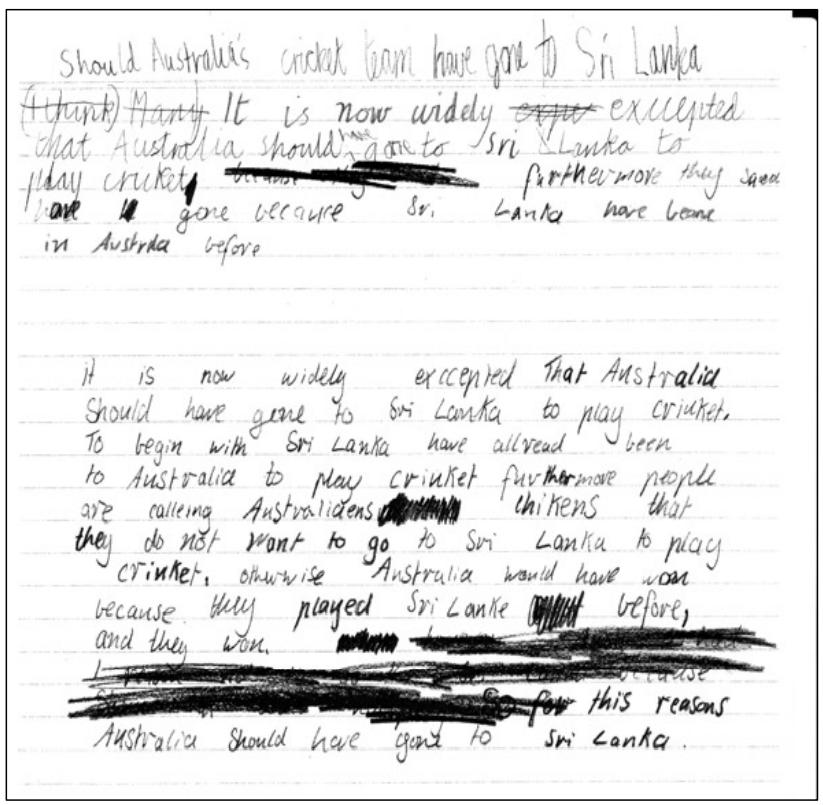 Should Australia's cricket team have gone to Sri Lanka
(I think) Many It is now widely expe excepted
that Australia should have gone to Sri Lanka to
play cricket, because they furthermore they
have gone because Sri Lanka have beane
in Austrlia before
it is now widely exccepted That Australia
Should have gone to Sri Lanka to play crinket.
To begin with Sri Lanka have allread been
to Australia to play crinket furthermore people
are calleing Australiaens chikens that
they do not want to go to Sri Lanka to play
crinket. otherwise Australia would have won
because they played Sri Lanke before,
and they won.
because
for this reasons
Australia Should have gone to Sri Lanka.